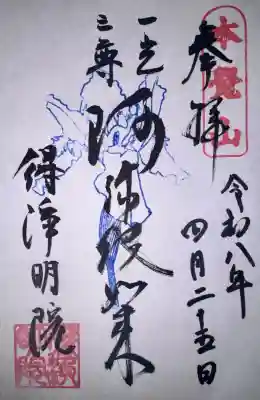 本覺山
奉拝
令和八年
四月二十五日
一光
三尊
阿弥陀如来
得浄明院